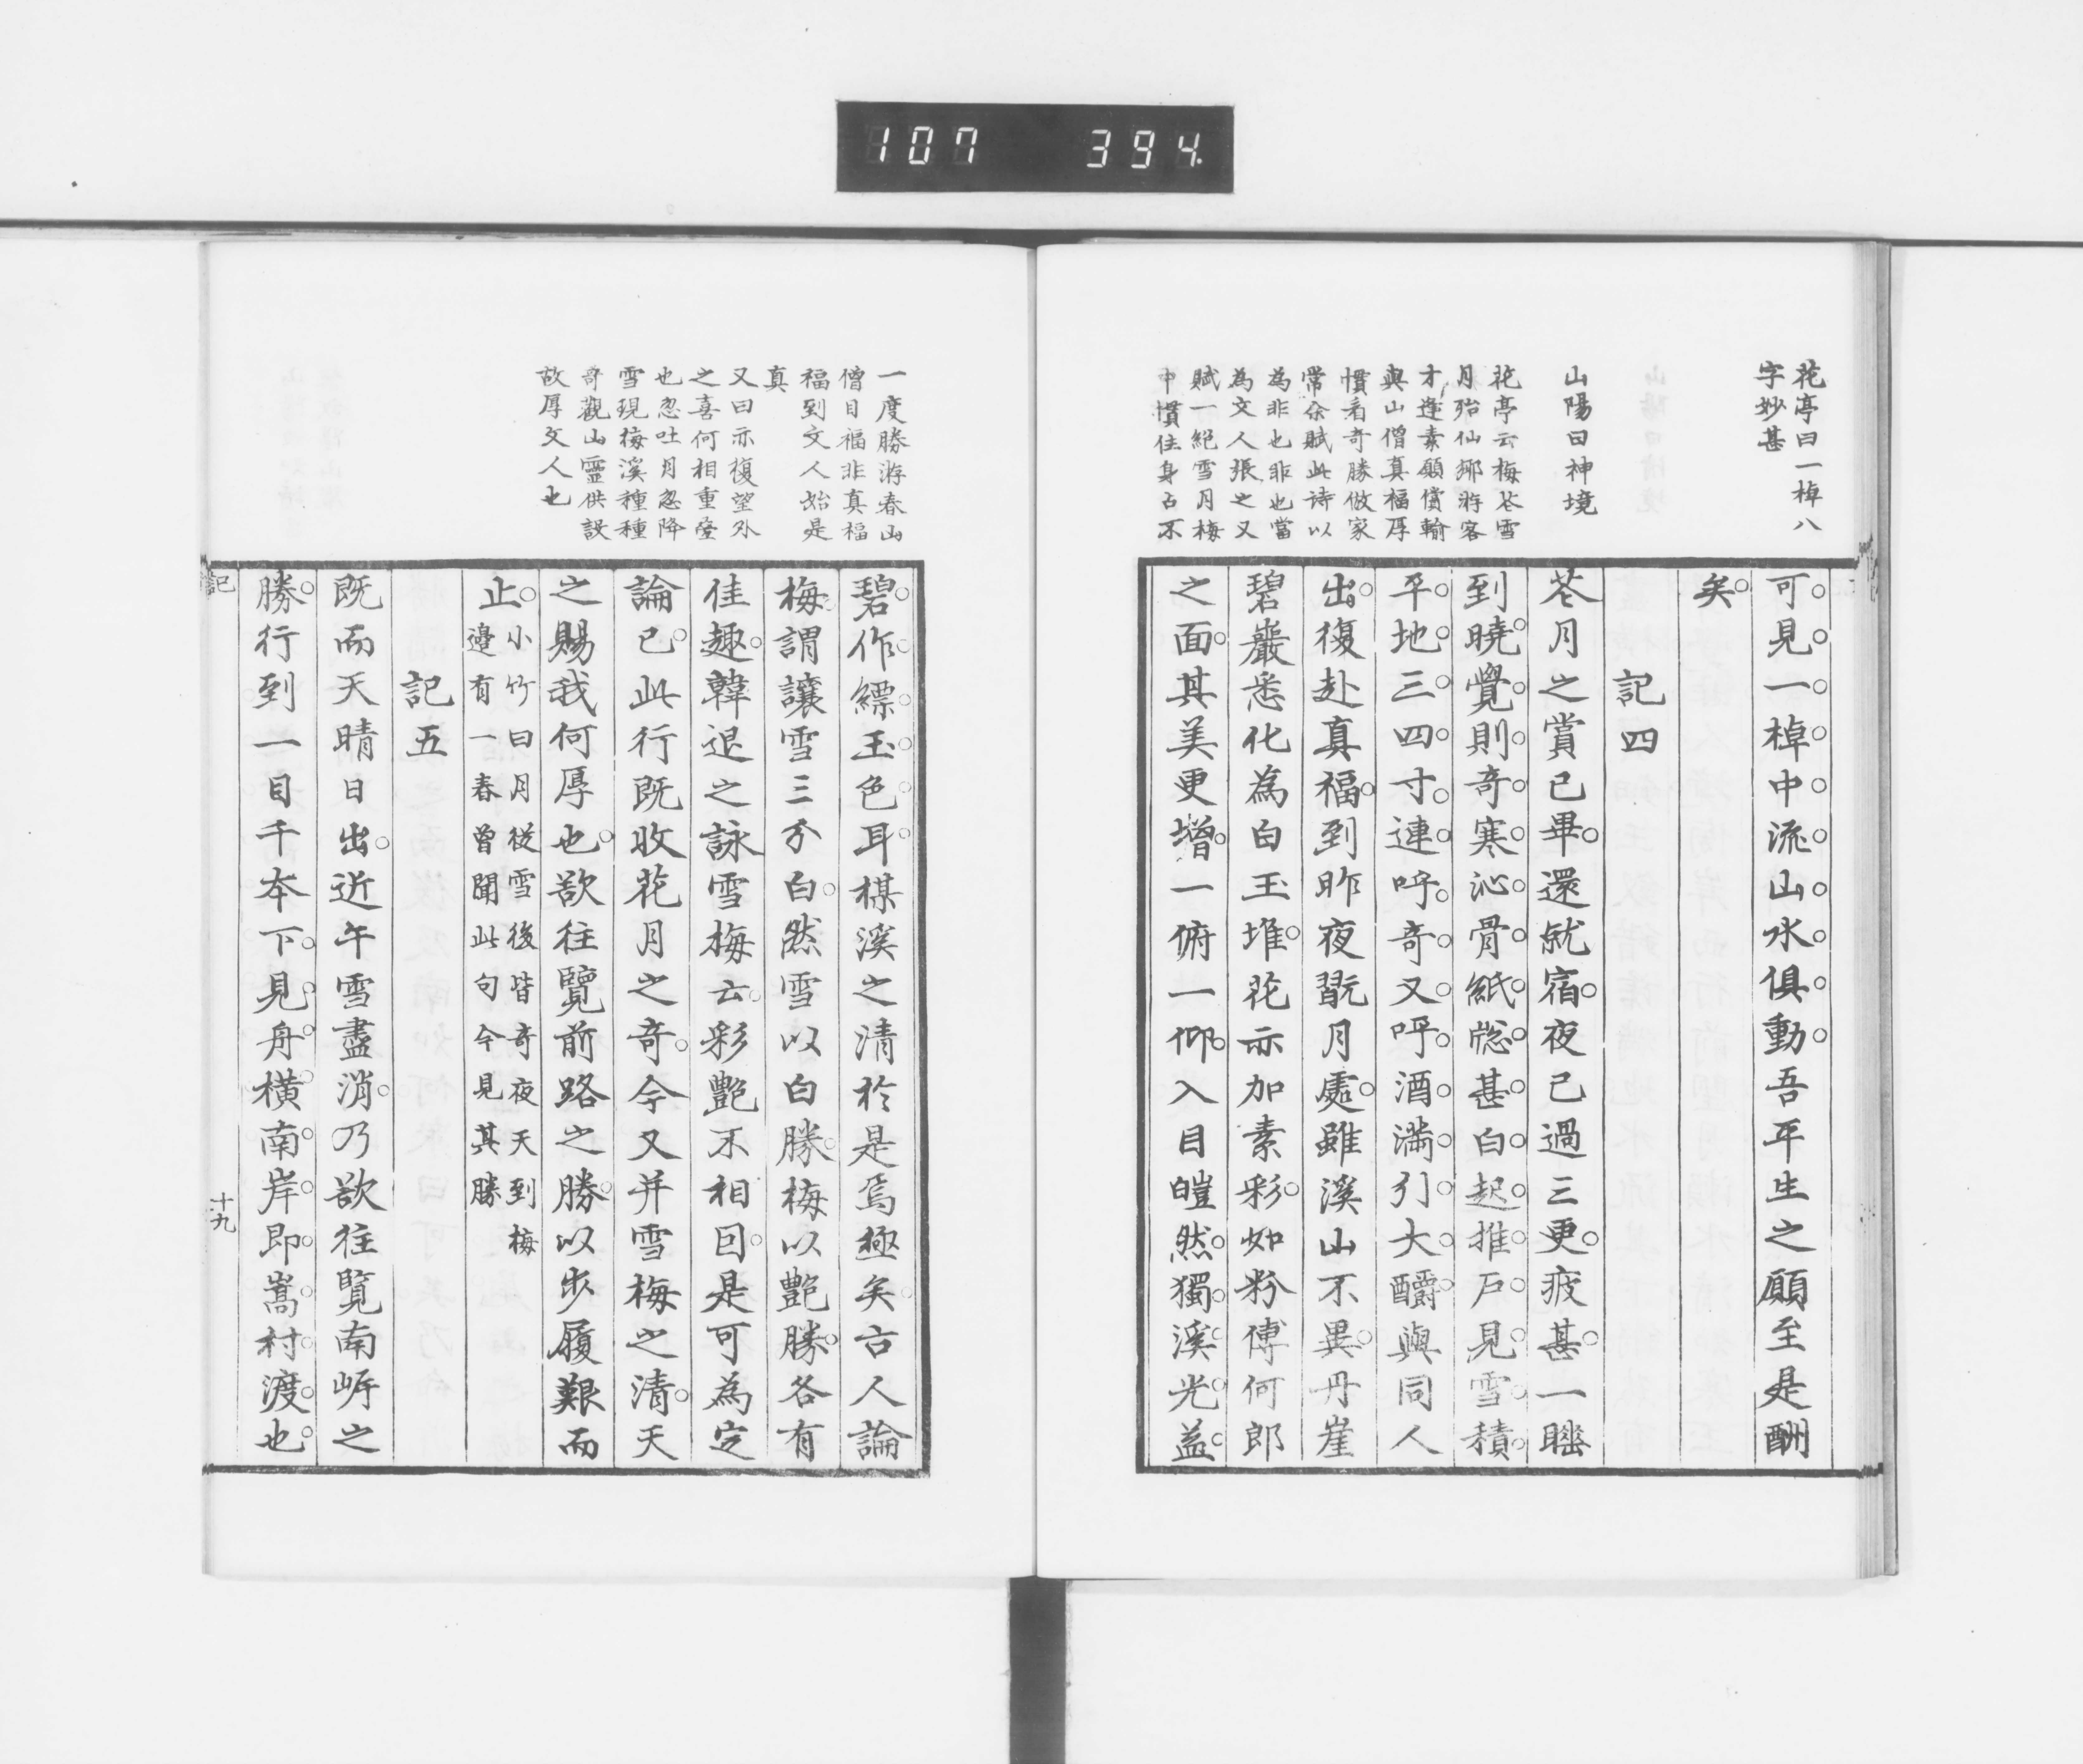 107 394
花亭曰一棹八
字妙甚
山陽曰神境
花亭云梅花雪
月殆仙鄉游客
才逢素願償輸
與山僧真福厚
慣看奇勝倣家
常余賦此詩以
為非也非也當
為文人張之又
賦一絕雪月梅
中慣住身占不
可見一棹中流山水俱動吾平生之願至是酬
矣
記四
花月之賞已畢還就宿夜已過三更疲甚一睡
到曉覺則奇寒沁骨紙窓甚白起推戶見雪積
平地三四寸連呼奇又呼酒滿引大釂與同人
出復赴真福到昨夜翫月處雖溪山不異丹崖
碧巖悉化為白玉堆花亦加素彩如粉傅何郎
之面其美更增一俯一仰入目皚然獨溪光益
一度勝游春山
僧目福非真福
福到文人始是
真
又曰亦復望外
之喜何相重疊
也忽吐月忽降
雪現梅溪種種
奇觀山靈供設
故厚文人也
碧作縹玉色耳棋溪之清於是焉極矣古人論
梅謂讓雪三分白然雪以白勝梅以艷勝各有
佳趣韓退之詠雪梅云彩艷不相因是可為定
論已此行既收花月之奇今又并雪梅之清天
之賜我何厚也欲往覽前路之勝以步履艱而
止小竹曰月從雪後皆奇夜天到梅
邊有一春曾聞此句今見其勝
記五
既而天晴日出近午雪盡消乃欲往覽南岸之
勝行到一目千本下見舟橫南岸即嵩村渡也
記
十九